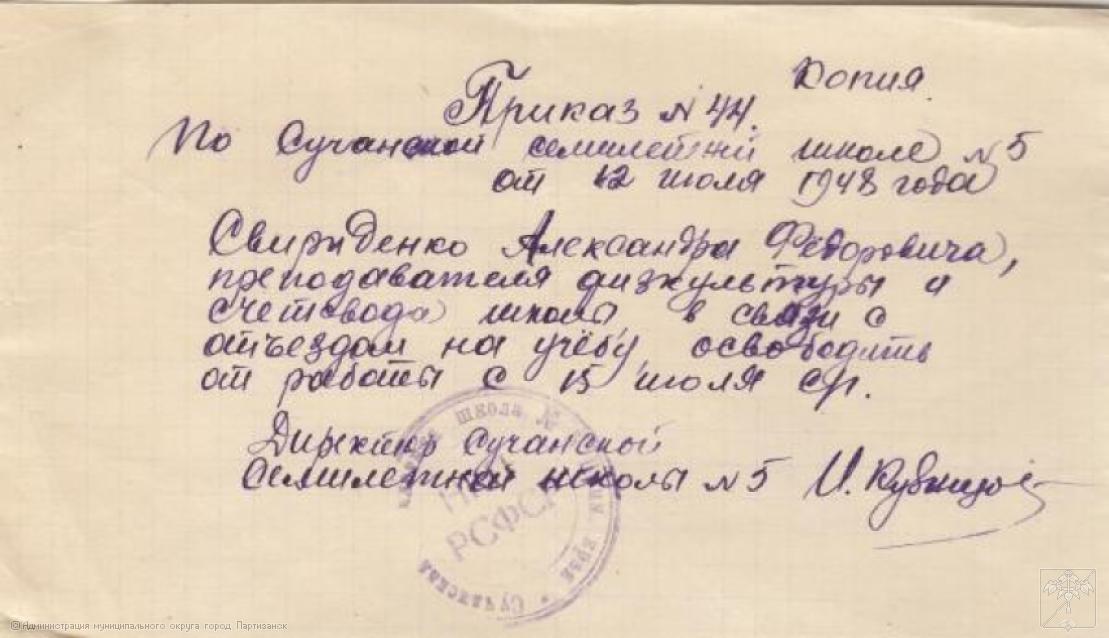 Копия.
Приказ N 44.
По Сучанской семилетней школе N 5
от 12 июля 1948 года
Свириденко Александра Фёдоровича,
преподавателя физкультуры и
счетовода школы в связи с
отъездом на учёбу, освободить
от работы с 15 июля с/г.
Директор Сучанской
семилетней школы N 5 И.
школа №
РСФСР
край • Сучанская
© Администрация муниципального округа город Партизанск